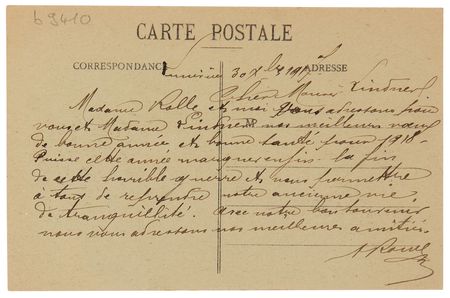 b 9410
CARTE POSTALE
CORRESPONDANCE
ADRESSE
30 Xbre 1917
Cher Monsieur Lindner
Madame Rolle et moi vous adressons pour
vous et Madame Lindner nos meilleurs vœux
de bonne année et bonne santé pour 1918 -
Puisse cette année marquer enfin la fin
de cette horrible guerre et nous permettre
à tous de reprendre notre ancienne vie
de tranquillité. Avec notre bon souvenir
nous vous adressons nos meilleures amitiés.